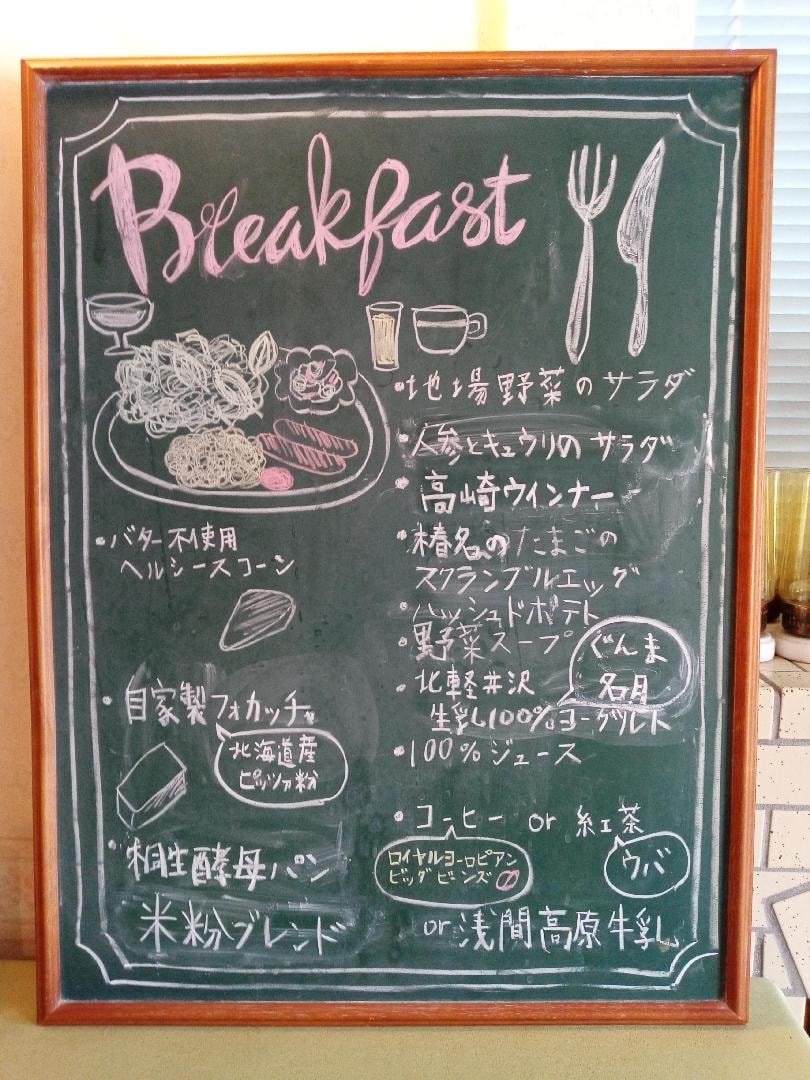 Breakfast
・地場野菜のサラダ
・人参とキュウリのサラダ
・高崎ウインナー
・榛名のたまごの
スクランブルエッグ
・ハッシュドポテト
・野菜スープ
・北軽井沢
生乳100%ヨーグルト
ぐんま
名月
・100%ジュース
・コーヒー or 紅茶
ロイヤルヨーロピアン
ビッグビーンズ
ウバ
or 浅間高原牛乳
・バター不使用
ヘルシースコーン
・自家製フォカッチャ
北海道産
ピッツァ粉
・桐生酵母パン
米粉ブレンド